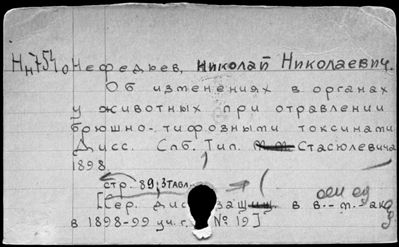 Нн754о Нефедьев, Николай Николаевич.
Об изменениях в органах
у животных при отравлении
брюшно-тифозными токсинами
Дисс. Спб. Тип. Стасюлевича
1898
стр. 89; 3 табл.
[Сер. дисс. защищ. в в.-м. акад
в 1898-99 уч. г. № 19]